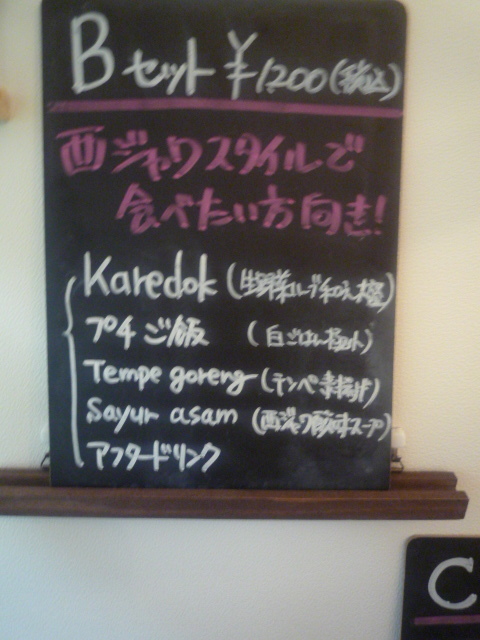 Bセット ¥1200(税込)
西ジャワスタイルで
食べたい方向き!
Karedok (生野菜
プチご飯 (白ごはん
Tempe goreng (テンペ素揚げ)
Sayur asam (西ジャワ酸味スープ)
アフタードリンク
C